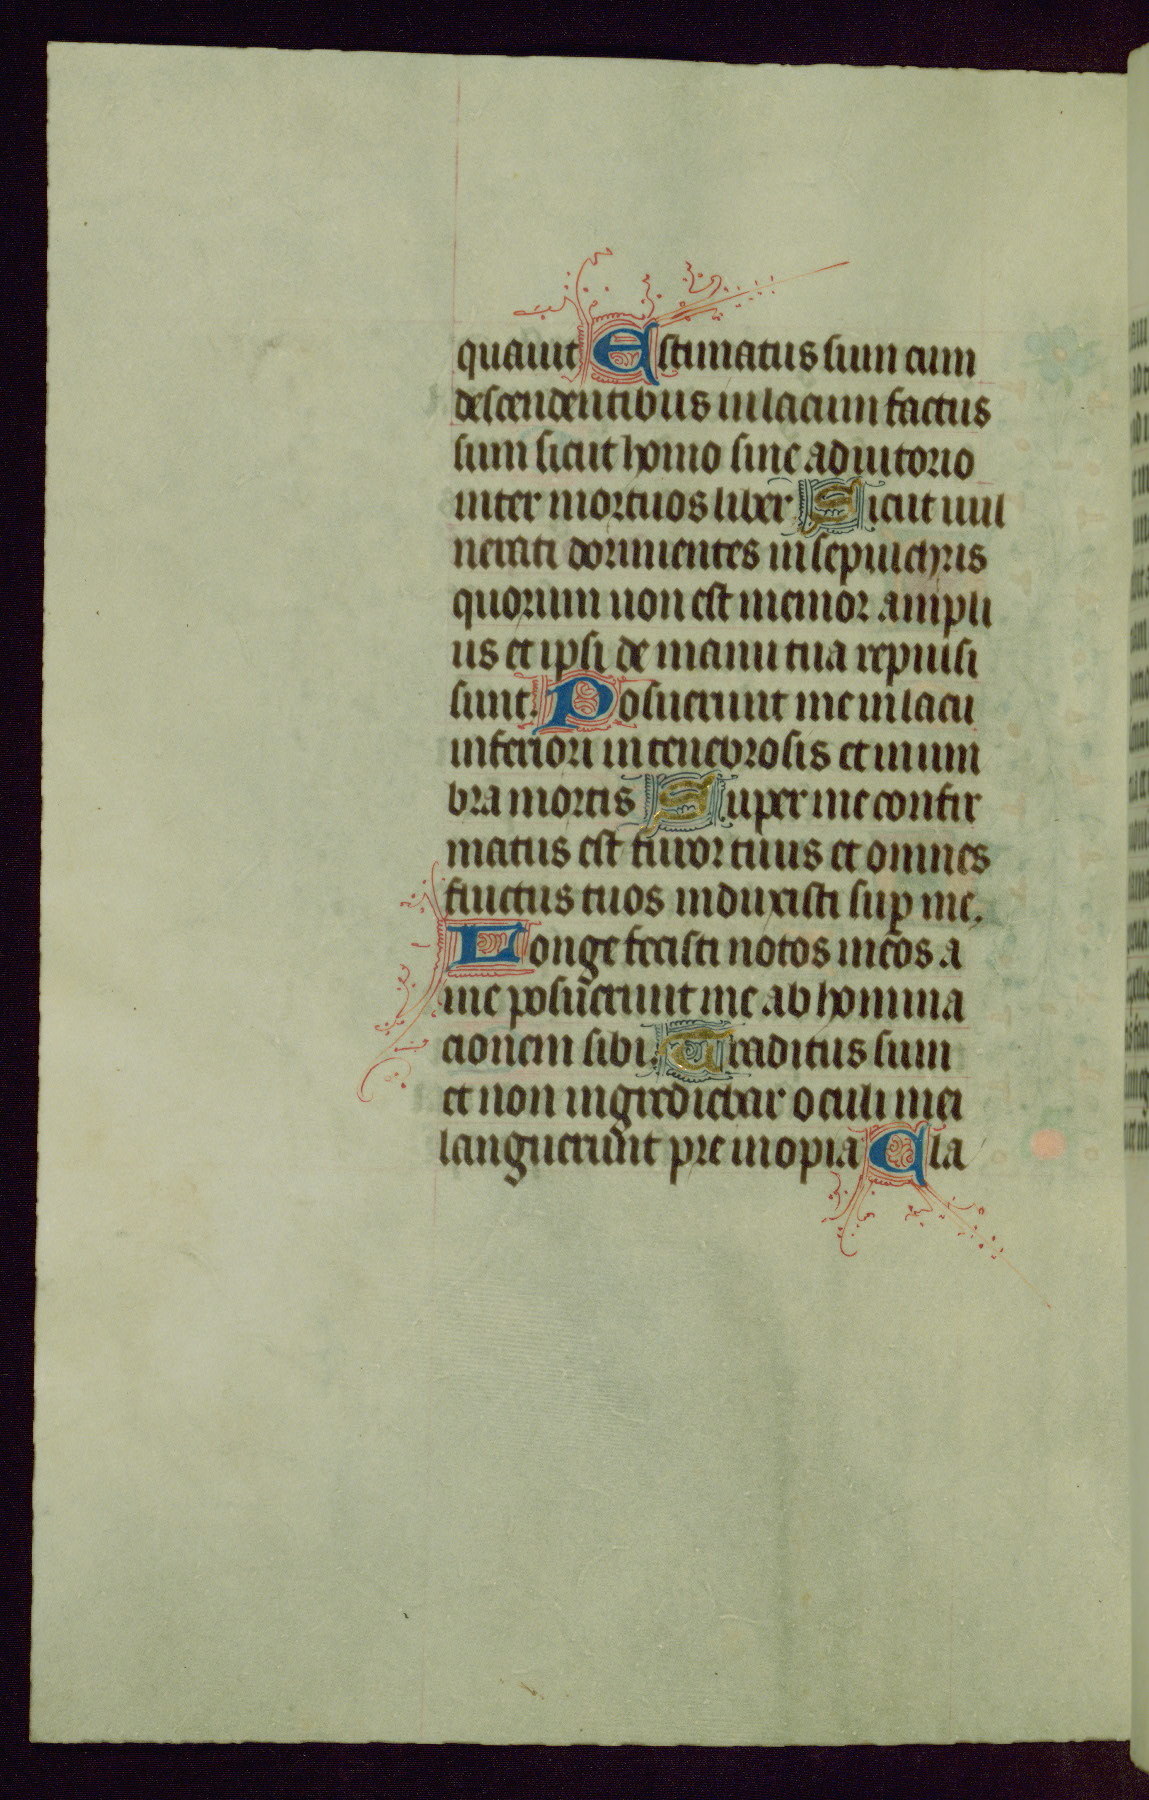 quauit Estimatus sum cum
descendentibus in lacum factus
sum sicut homo sine adiutorio
inter mortuos liber Sicut uul
nerati dormientes in sepulchris
quorum non est memor ampli
us et ipsi de manu tua repulsi
sunt. Posuerunt me in lacu
inferiori in tenebrosis et in um
bra mortis Super me confir
matus est furor tuus et omnes
fluctus tuos induxisti sup me.
Longe fecisti notos meos a
me posuerunt me ab homina
cionem sibi. Traditus sum
et non ingrediebar oculi mei
languerunt pre inopia Cla